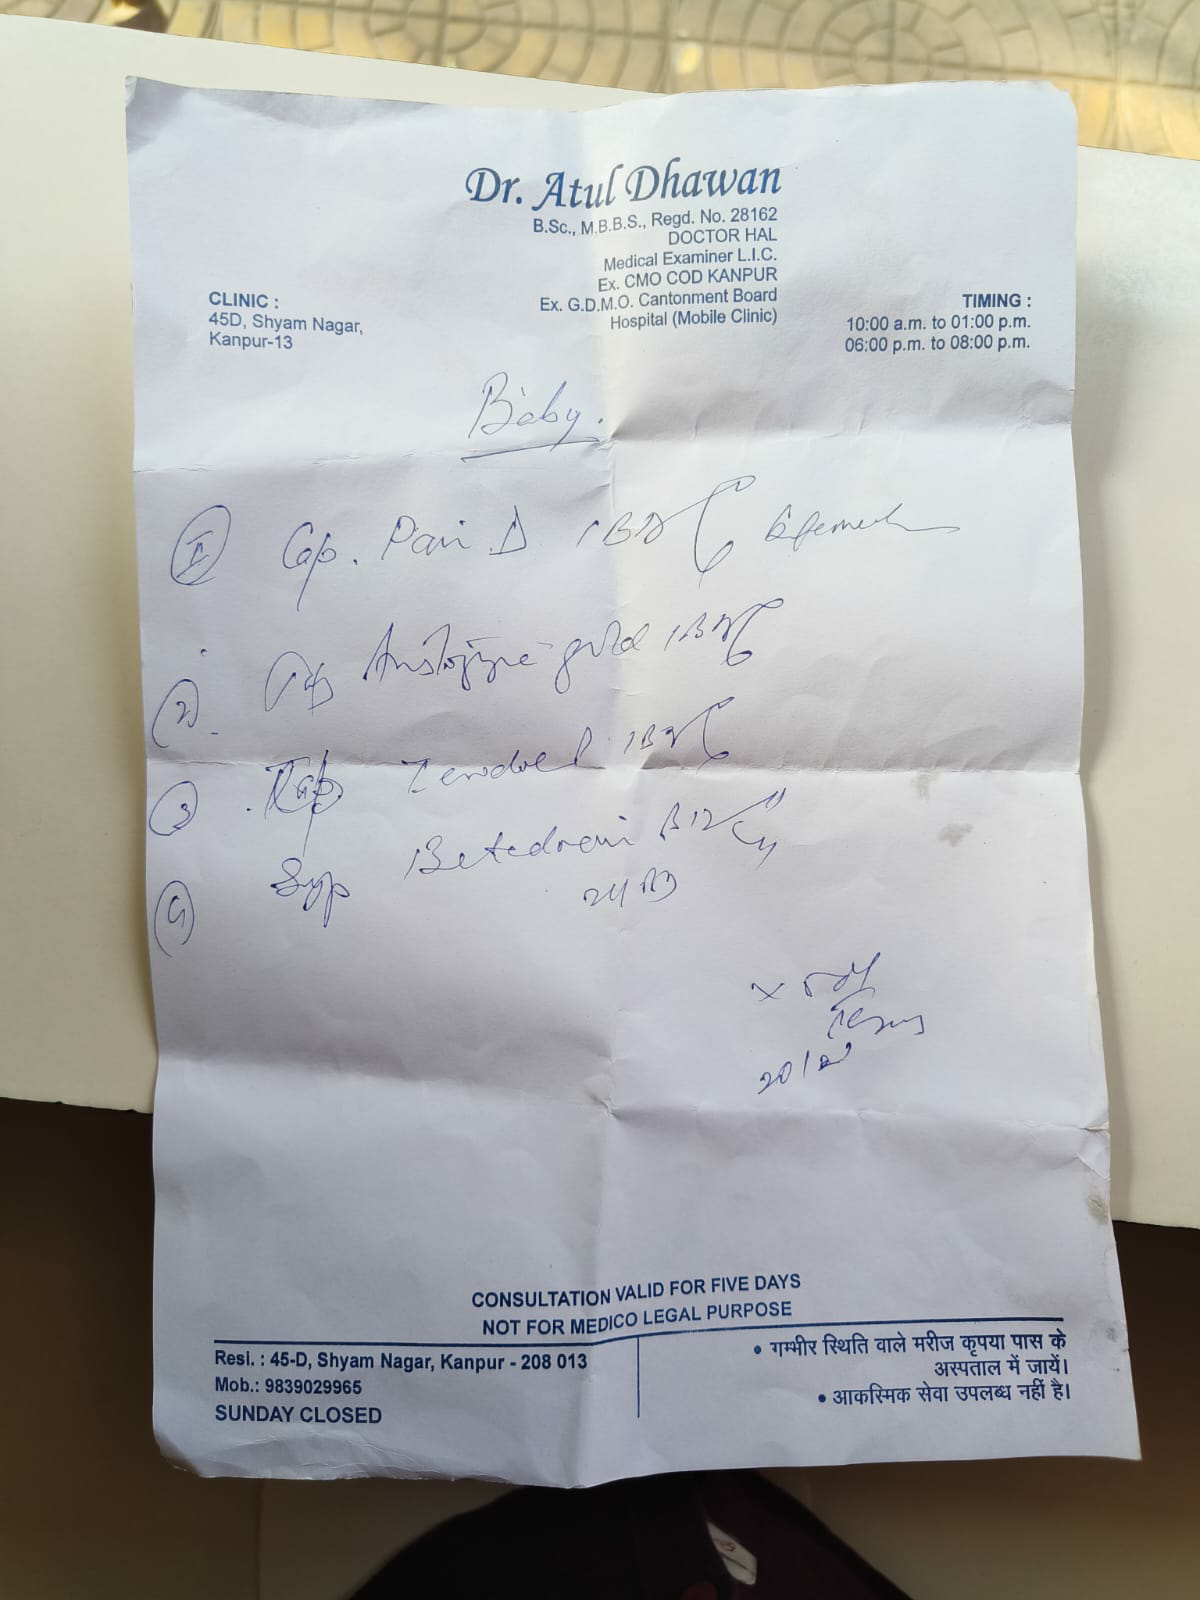 Dr. Atul Dhawan
B.Sc., M.B.B.S., Regd. No. 28162
DOCTOR HAL
Medical Examiner L.I.C.
Ex. CMO COD KANPUR
Ex. G.D.M.O. Cantonment Board
Hospital (Mobile Clinic)
CLINIC :
45D, Shyam Nagar,
Kanpur-13
TIMING :
10:00 a.m. to 01:00 p.m.
06:00 p.m. to 08:00 p.m.
Baby.
Cap. Pan D 1BD
gold 1BD
3 Tab 1BD
4 Syp B12
X ray
CONSULTATION VALID FOR FIVE DAYS
NOT FOR MEDICO LEGAL PURPOSE
Resi. : 45-D, Shyam Nagar, Kanpur - 208 013
Mob.: 9839029965
SUNDAY CLOSED
• गम्भीर स्थिति वाले मरीज कृपया पास के
अस्पताल में जायें।
• आकस्मिक सेवा उपलब्ध नहीं है।